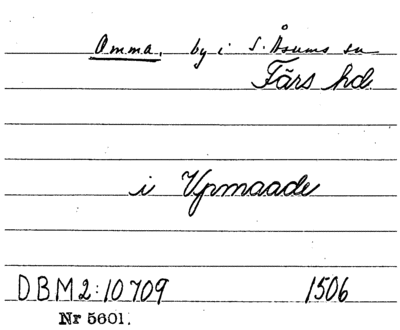 Omma, by i S. Åsums sn
Färs hd.
i Vpmaade
DBM2:10709 1506
Nr 5601.